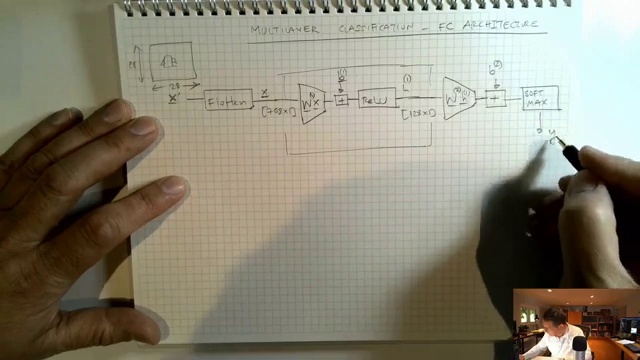 MULTILAYER CLASSIFICATION - FC ARCHITECTURE
28
28
x'
Flatten
x
[768x1]
W⁽¹⁾x
b⁽¹⁾
+
ReLU
h⁽¹⁾
[128x1]
W⁽²⁾h⁽¹⁾
b⁽²⁾
+
SOFT
MAX